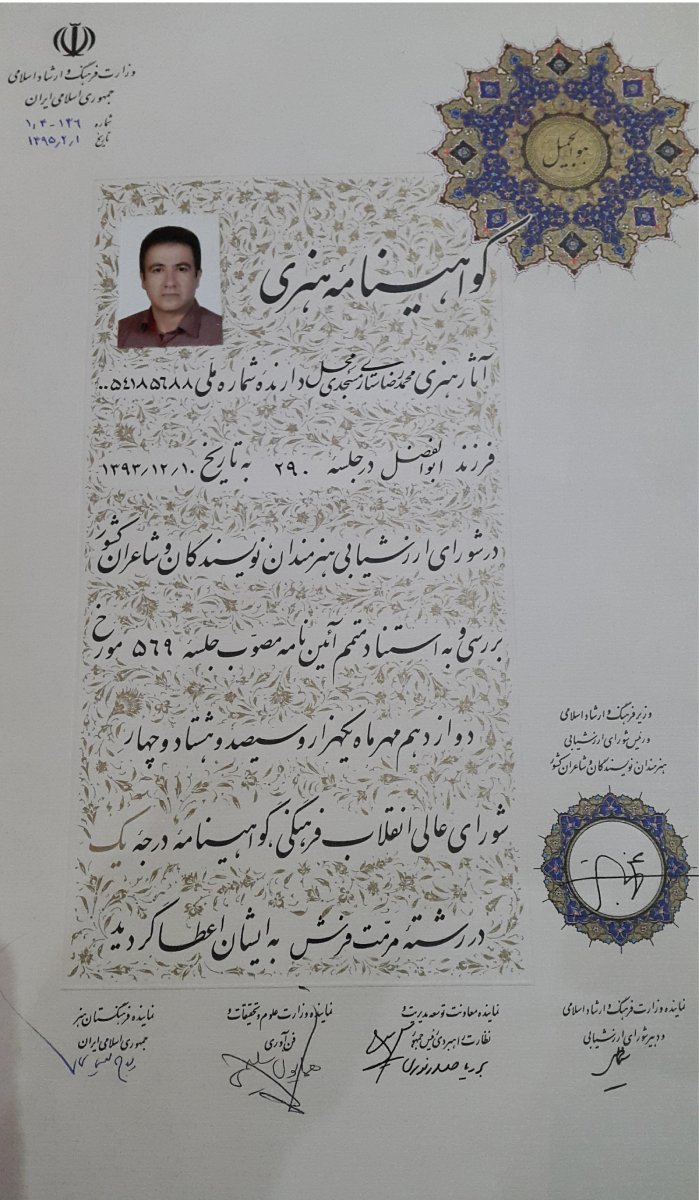 وزارت فرهنگ و ارشاد اسلامی
جمهوری اسلامی ایران
شماره ۱۰۴-۱۳۶
تاریخ ۱۳۹۵/۲/۱
هو الجمیل
گواهینامهٔ هنری
آثار هنری محمدرضا ستاری مسجدی محل دارندهٔ شماره ملی ۵۴۱۸۵۶۸۸۰۰
فرزند ابوالفضل در جلسهٔ ۲۹۰ به تاریخ ۱۳۹۳/۱۲/۱۰
در شورای ارزشیابی هنرمندان نویسندگان و شاعران کشور
بررسی و به استناد متمم آئین نامه مصوب جلسهٔ ۵۶۹ مورخ
دوازدهم مهرماه یکهزار و سیصد و هشتاد و چهار
شورای عالی انقلاب فرهنگی، گواهینامهٔ درجهٔ یک
در رشتهٔ مرمت فرش به ایشان اعطا گردید
وزیر فرهنگ و ارشاد اسلامی
و رئیس شورای ارزشیابی
هنرمندان نویسندگان و شاعران کشور
نماینده وزارت فرهنگ و ارشاد اسلامی
و دبیر شورای ارزشیابی
نماینده معاونت توسعه مدیریت و
نظارت راهبردی رئیس جمهور
نماینده وزارت علوم و تحقیقات و
فن‌آوری
نماینده فرهنگستان هنر
جمهوری اسلامی ایران